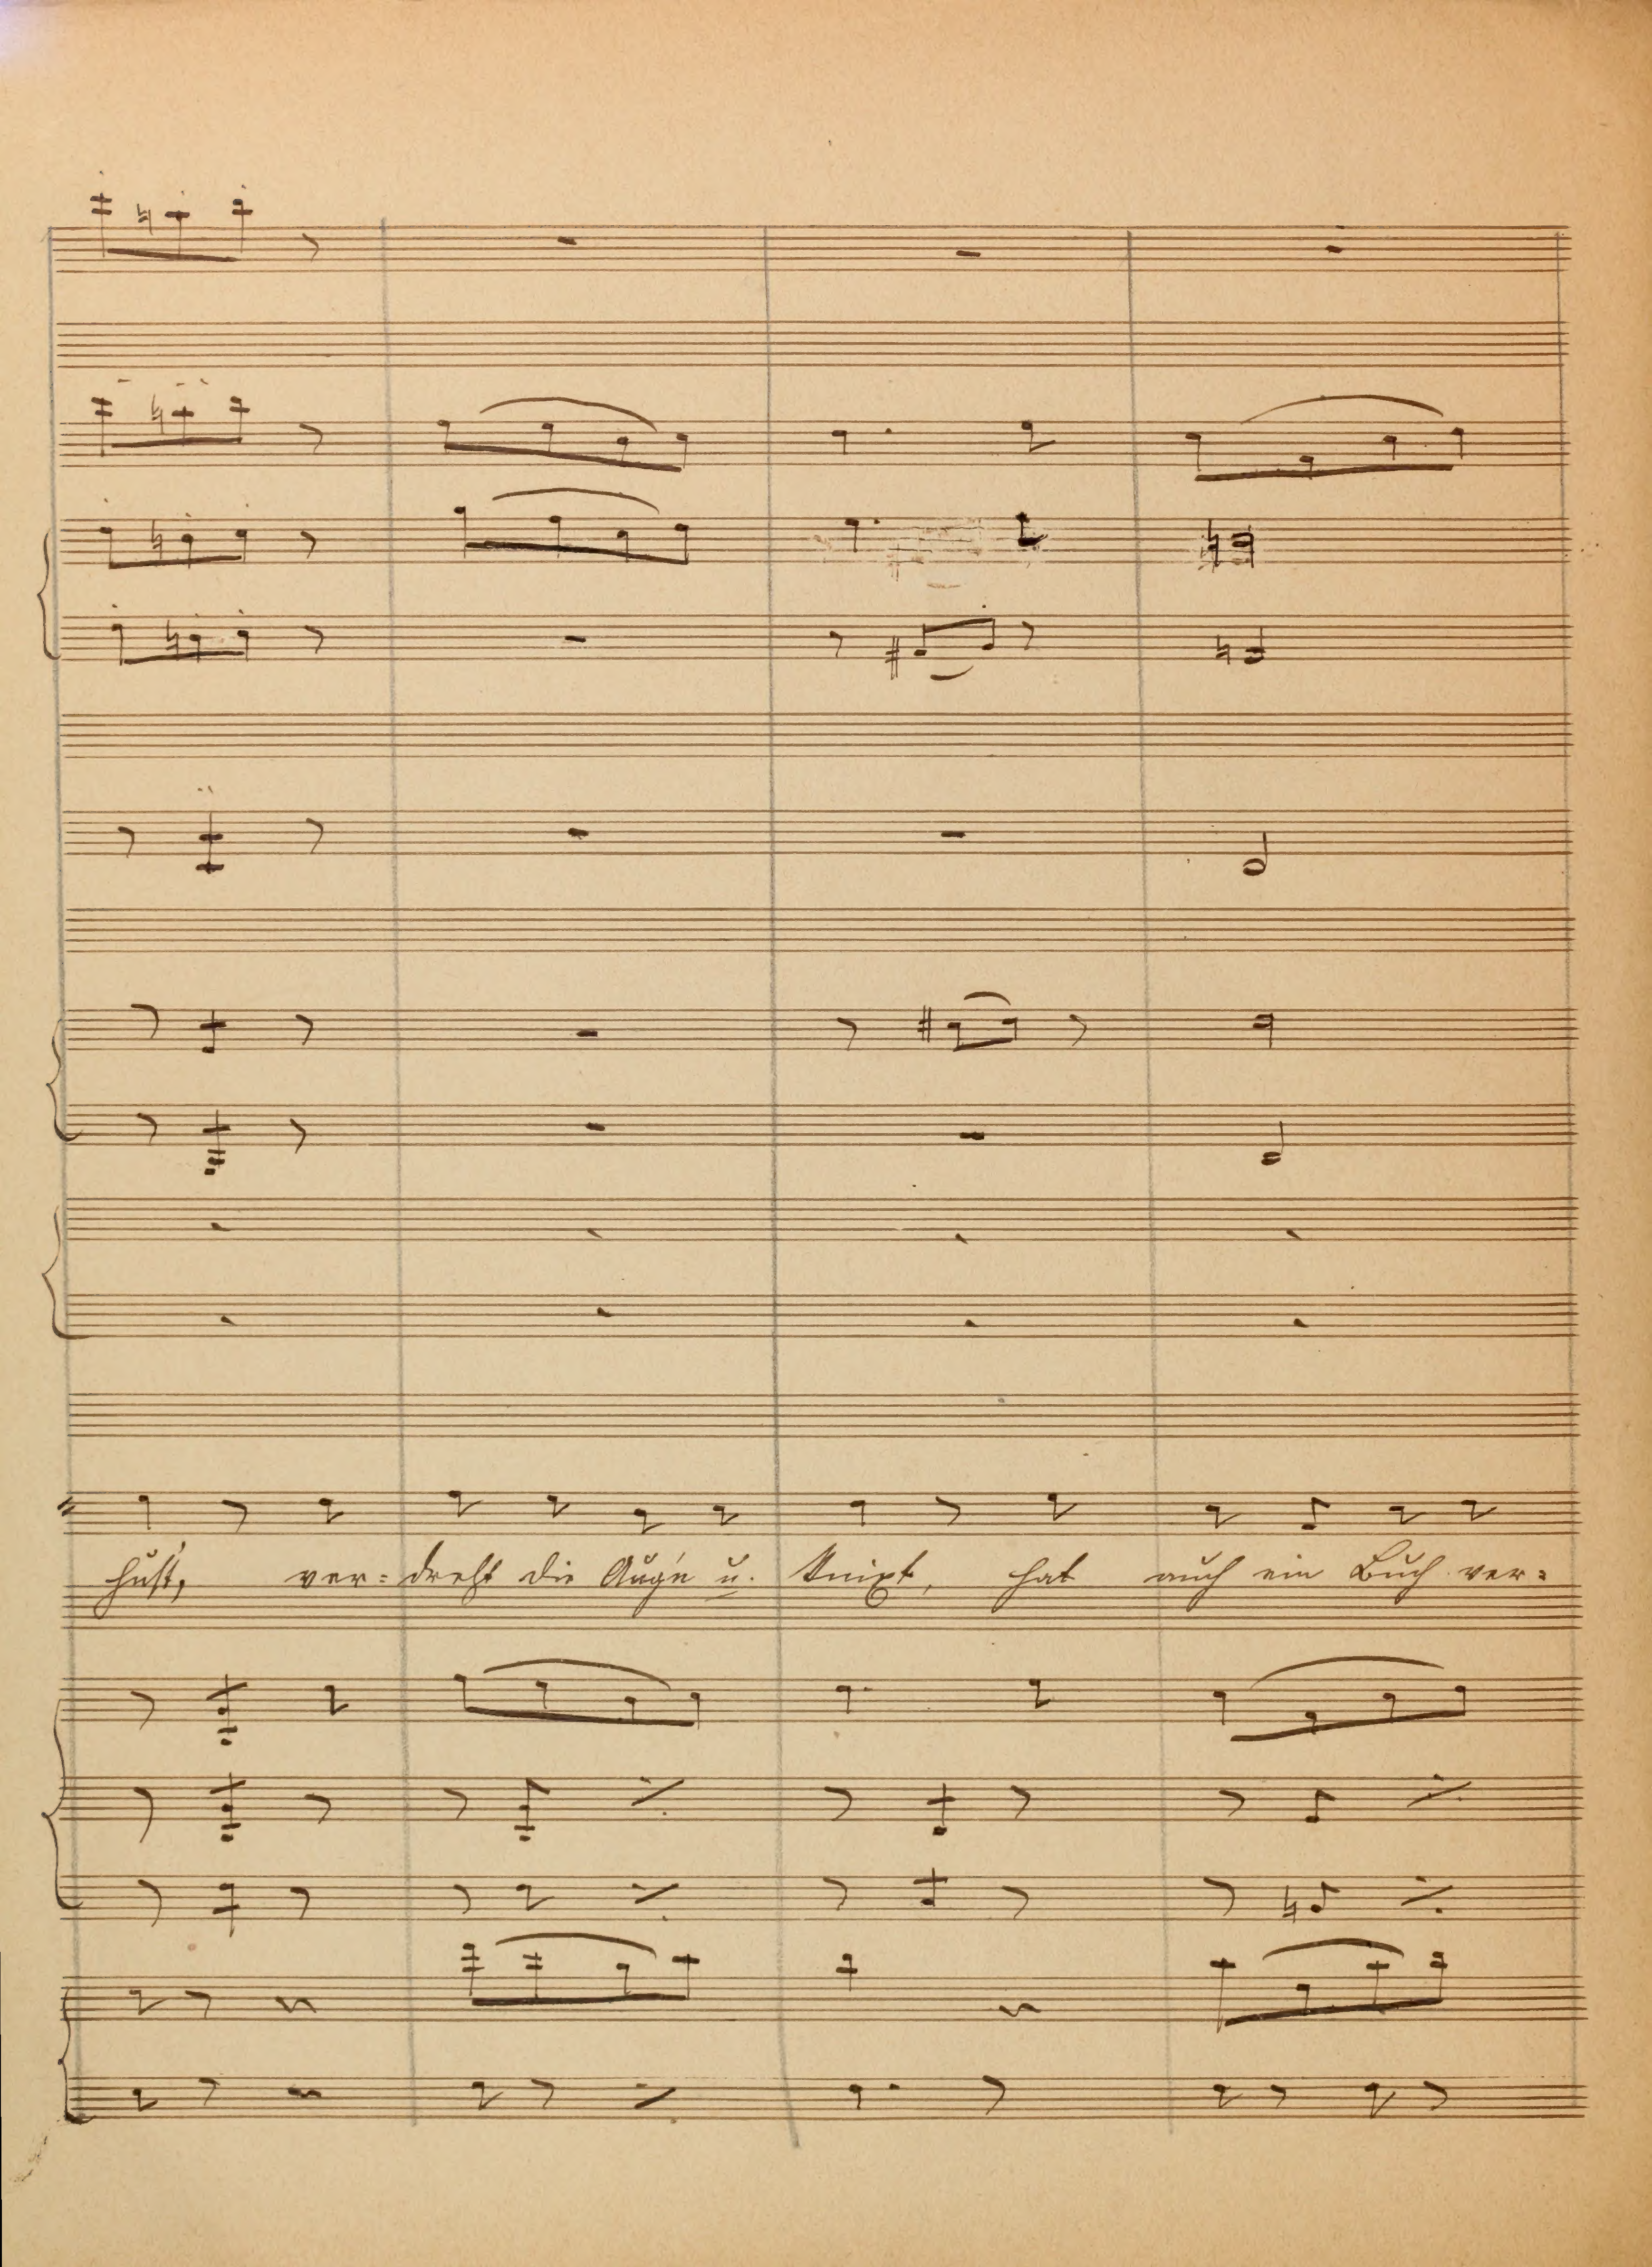 hust, ver= dreht die Aug'n u. knixt, hat auch ein Buch ver=